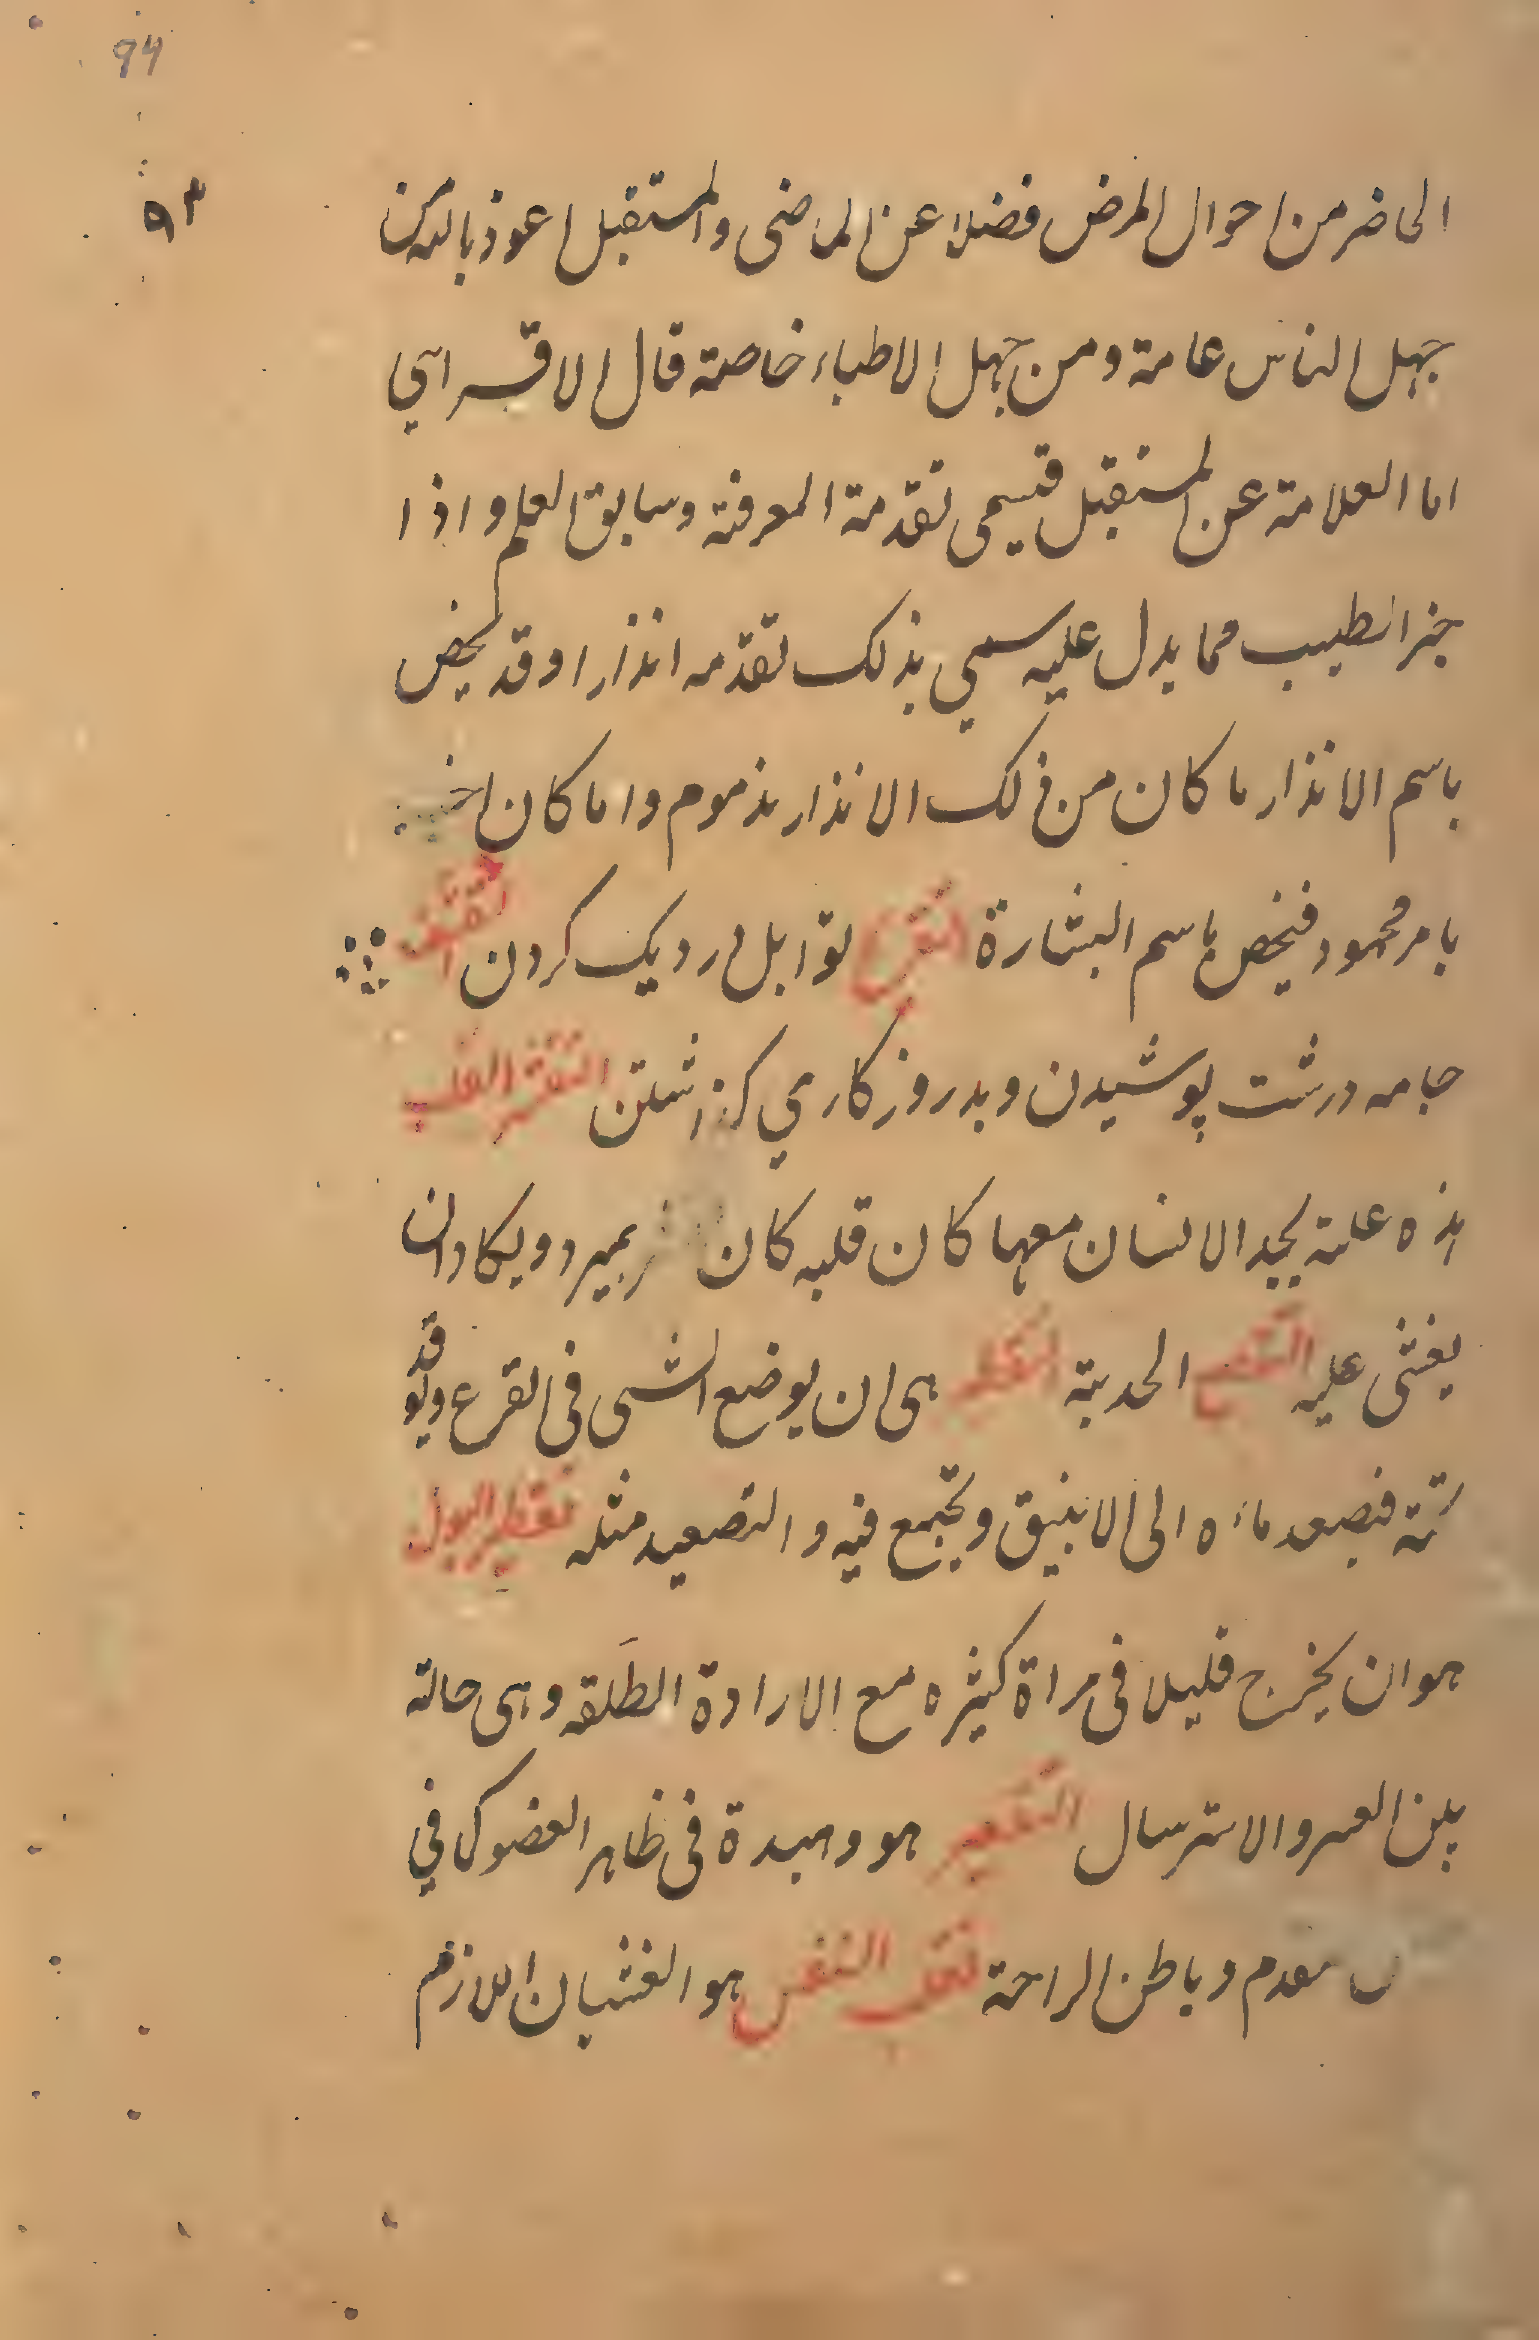 94
٩٣
الحاضر من احوال المرض فضلا عن الماضى والمستقبل اعوذ بالله من
جهل الناس عامة ومن جهل الاطباء خاصة قال الاقسرآي
اما العلامة عن المستقبل فتسمى تقدمة المعرفة وسابق العلم واذا
خبر الطبيب مما يدل عليه سمي بذلك تقدمه انذارا وقد يخص
باسم الانذار ما كان من ذلك الانذار بذموم واما كان
بامر محمود فيخص باسم البشارة التقزح توابل در ديك كردن التقشف
جامه درشت پوشيدن وبد روزكاري كذاشتن القلب
هذه علة يجد الانسان معها كان قلبه كان يميرد ويكاد ان
يغشى عليه الحدبة التقطير هى ان يوضع الشى فى القرع ويوقد
تحته فيصعد ماءه الى الانبيق ويجتمع فيه والتصعيد مثله تقطير البول
هو ان يخرج قليلا فى مراة كثيره مع الارادة الطلقه وهى حالة
بين العسر والاسترسال التقعير هو وهبدة فى ظاهر العضو كما في
مقدم وباطن الراحة تقلب النفس هو الغشيان اللازم